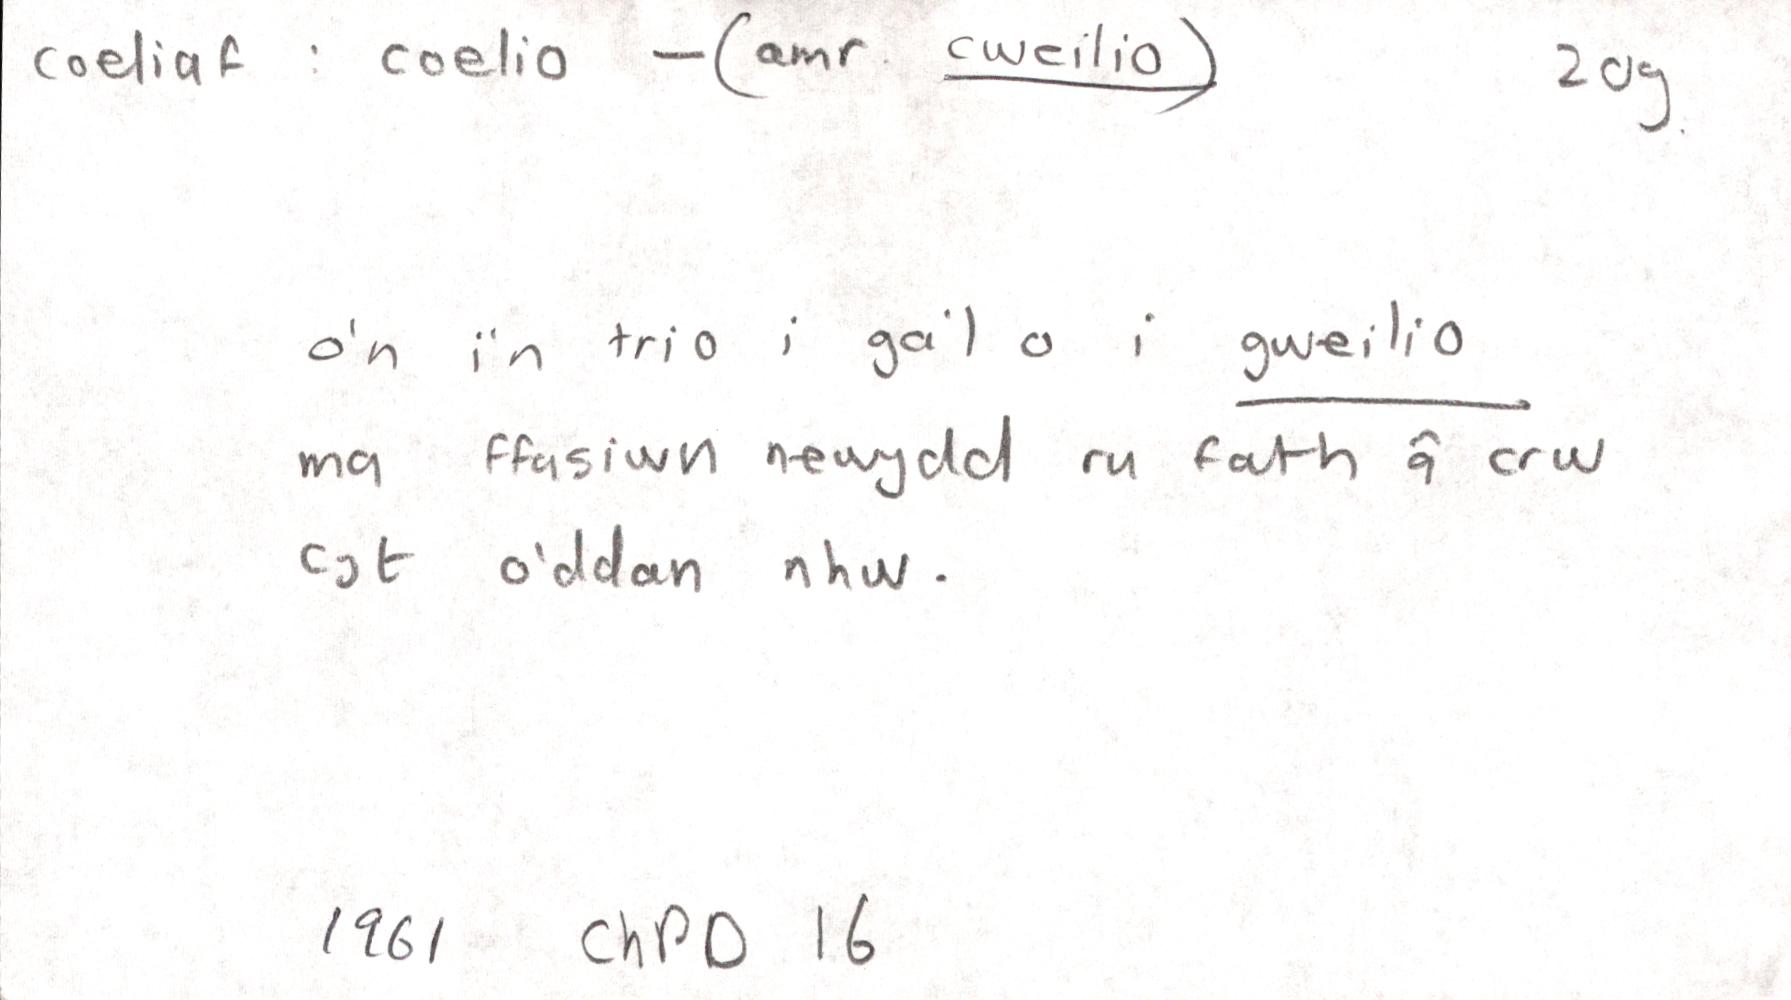 coeliaf : coelio – (amr. cweilio) 20g.
o'n i'n trio i ga'l o i gweilio
ma ffasiwn newydd ru fath â crw
cyt o'ddan nhw.
1961 ChPD 16